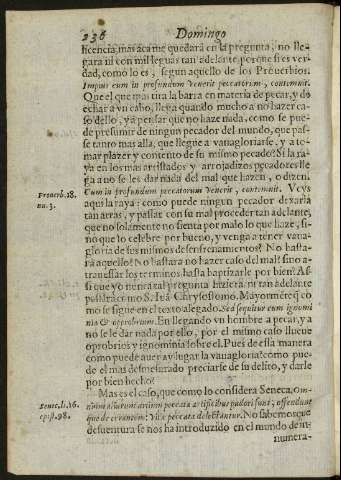 236 Domingo
licencia, mas aca me quedarà en la pregunta, no lle-
gara ni con mil leguas tan adelante, porque si es ver-
dad, como lo es, segun aquello de los Prouerbios.
Impius cum in profundum Venerit peccatorum, contemnit.
Que el que mas tira la barra en materia de pecar, y de
echar a vn cabo, llega quando mucho a no hazer ca-
so dello, y a pensar que no haze nada, como se pue-
de presumir de ningun pecador del mundo, que pas-
se tanto mas alla, que llegue a vanagloriarse, y a to-
mar plazer y contento de su mismo pecado? Si la ra-
ya en los mas artillados y arrojadizos pecadores lle-
ga a no se les dar nada del mal que hazen, o dizen.
Prouerb. 18.
nu. 3.
Cum in profundum peccatorum Venerit, contemnit. Veys
aqui la raya: como puede ningun pecador dexarla
tan atras, y passar con su mal proceder tan adelante,
que no solamente no sienta por malo lo que haze, si-
no que lo celebre por bueno, y venga a tener vana-
gloria de sus mismos desenfrenamientos? No basta-
rà aquello? No bastara no hazer caso del mal? sino a-
trauessar los terminos hasta baptizarle por bien? As-
si que yo no era tal pregunta hiziera, ni tan adelante
passàra como S. Iuã Chrysostomo. Mayormẽte q̃ co
mo se sigue en el texto alegado. Sed sequitur eum ignomi
nia & opprobrium. En llegando vn hombre a pecar, y a
no se le dar nada por ello, por el mismo caso llueue
oprobrios y ignominia sobre el. Pues de essa manera
como puede auer ay lugar la vanagloria? como pue-
de el mas desmesurado preciarse de su delito, y darle
por bien hecho?
Mas es el caso, que como lo considera Seneca, Om-
Senec. li. 16.
epist. 98.
nium aliarum artium peccata artificibus pudori sunt, offendunt
que de errantem: Vitæ peccata delectantur. No sabemos que
desuentura se nos ha introduzido en el mundo de in-
numera-